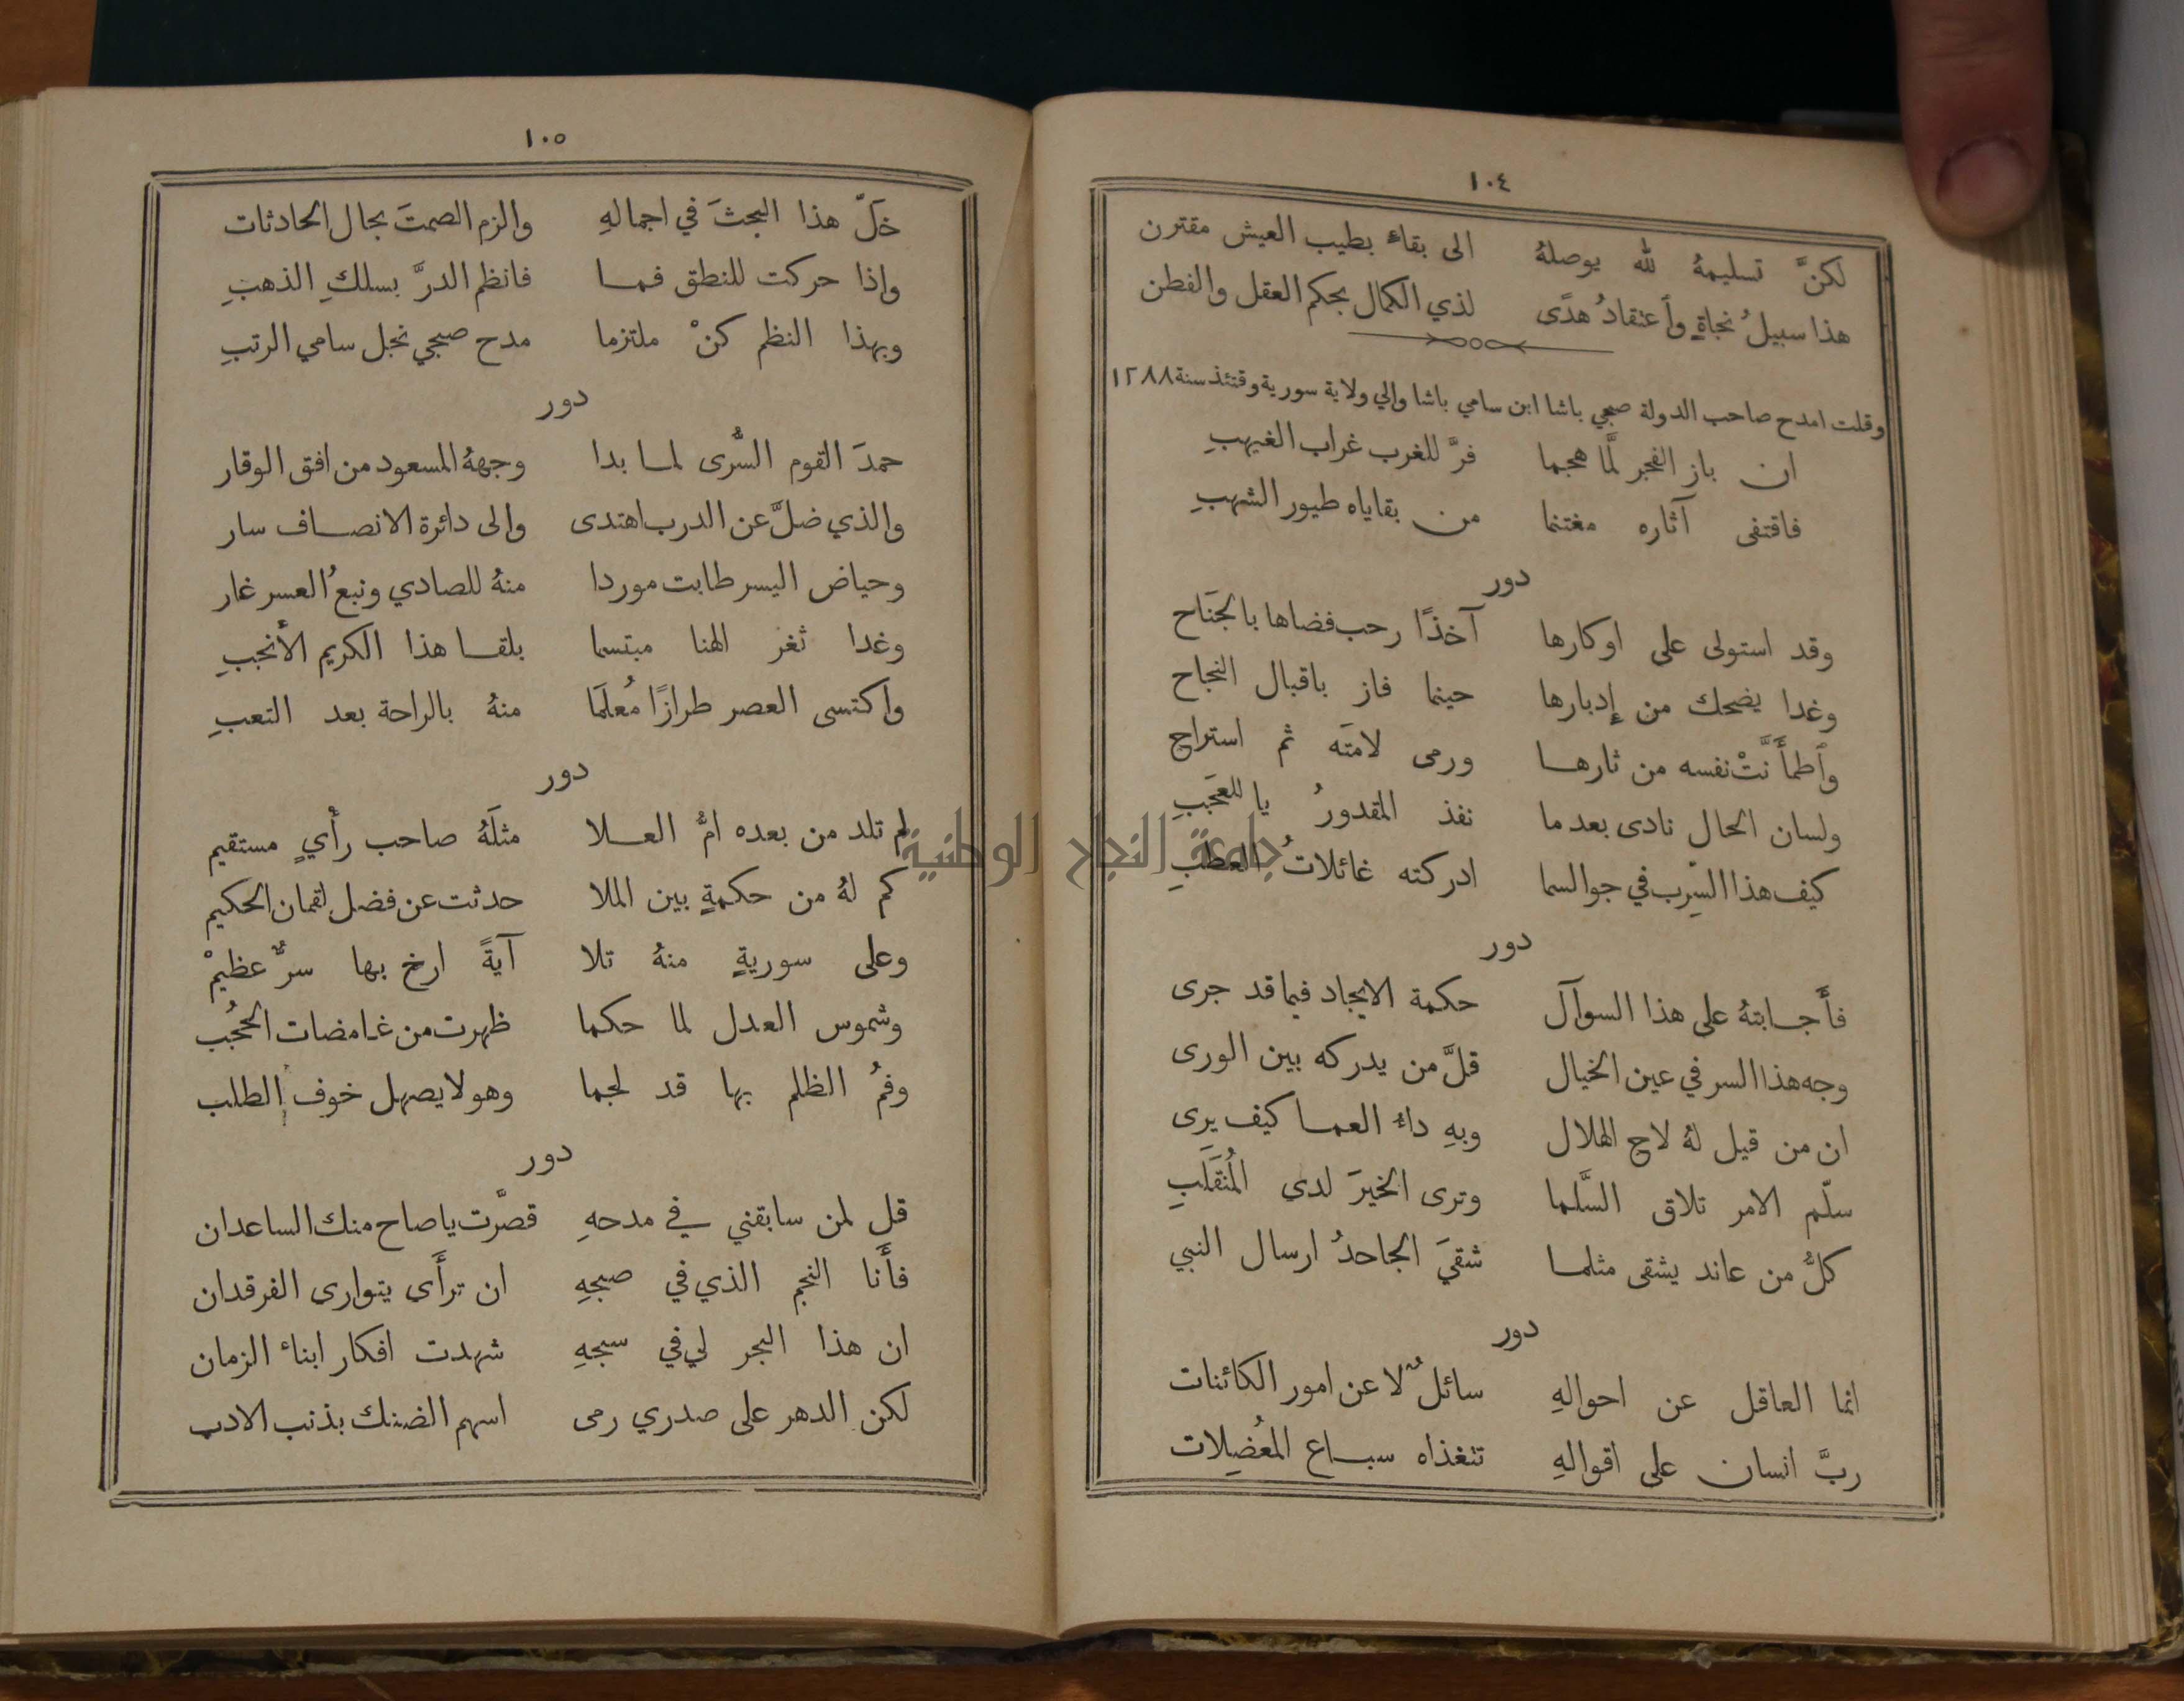 ١٠٤
لكنَّ تسليمهُ لله يوصلهُ الى بقاءٍ بطيب العيش مقترن
هذا سبيلُ نجاةٍ وأعتقادُ هدًى لذي الكمال بحكم العقل والفطن
وقلت امدح صاحب الدولة صبحي باشا ابن سامي باشا والي ولاية سورية وقتئذ سنة ١٢٨٨
ان باز الفجر لمَّا هجما فرَّ للغرب غراب الغيهبِ
فاقتفى آثاره مغتنما من بقاياه طيور الشهبِ
دور
وقد استولى على اوكارها آخذًا رحب فضاها بالجَنَاح
وغدا يضحك من إدبارها حينما فاز باقبال النجاح
وأطمأَنَّتْ نفسه من ثارها ورمى لامتَه ثم استراح
ولسان الحال نادى بعد ما نفذ المقدورُ يا للعَجَبِ
كيف هذا السِّرب في جو السما ادركته غائلاتُ العطبِ
دور
فأَجابتهُ على هذا السوآل حكمة الايجاد فيما قد جرى
وجه هذا السر في عين الخيال قلَّ من يدركه بين الورى
ان من قيل لهُ لاح الهلال وبهِ داءُ العما كيف يرى
سلّم الامر تلاق السَّلما وترى الخيرَ لدى المُنقَلَبِ
كلُّ من عاند يشقى مثلما شقيَ الجاحدُ ارسال النبي
دور
انما العاقل عن احوالهِ سائلٌ لا عن امور الكائنات
ربَّ انسان على اقوالهِ تتغذاه سباع المُعضِلات
١٠٥
خَلّ هذا البحثَ في اجمالهِ والزم الصمتَ بحال الحادثات
واذا حركت للنطق فما فانظم الدرَّ بسلكِ الذهبِ
وبهذا النظم كنْ ملتزما مدح صبحي نجل سامي الرتبِ
دور
حمدَ القوم السُّرى لما بدا وجههُ المسعود من افق الوقار
والذي ضلَّ عن الدرب اهتدى والى دائرة الانصاف سار
وحياض اليسر طابت موردا منهُ للصادي ونبعُ العسر غار
وغدا ثغر الهنا مبتسما بلقا هذا الكريم الأنجبِ
واكتسى العصر طرازًا مُعلَمَا منهُ بالراحة بعد التعبِ
دور
لم تلد من بعده امُّ العلا مثلَهُ صاحب رأيٍ مستقيم
كم لهُ من حكمةٍ بين الملا حدثت عن فضل لقمان الحكيم
وعلى سوريةٍ منهُ تلا آيةً ارخ بها سرٌّ عظيمْ
وشموس العدل لما حكما ظهرت من غامضات الحُجُب
وفمُ الظلم بها قد لجما وهو لا يصهل خوف الطلب
دور
قل لمن سابقني في مدحهِ قصَّرت يا صاح منك الساعدان
فأَنا النجم الذي في صبحهِ ان ترأَى يتوارى الفرقدان
ان هذا البحر لي في سبحهِ شهدت افكار ابناءِ الزمان
لكن الدهر على صدري رمى اسهم الضنك بذنب الادب
جامعة النجاح الوطنية